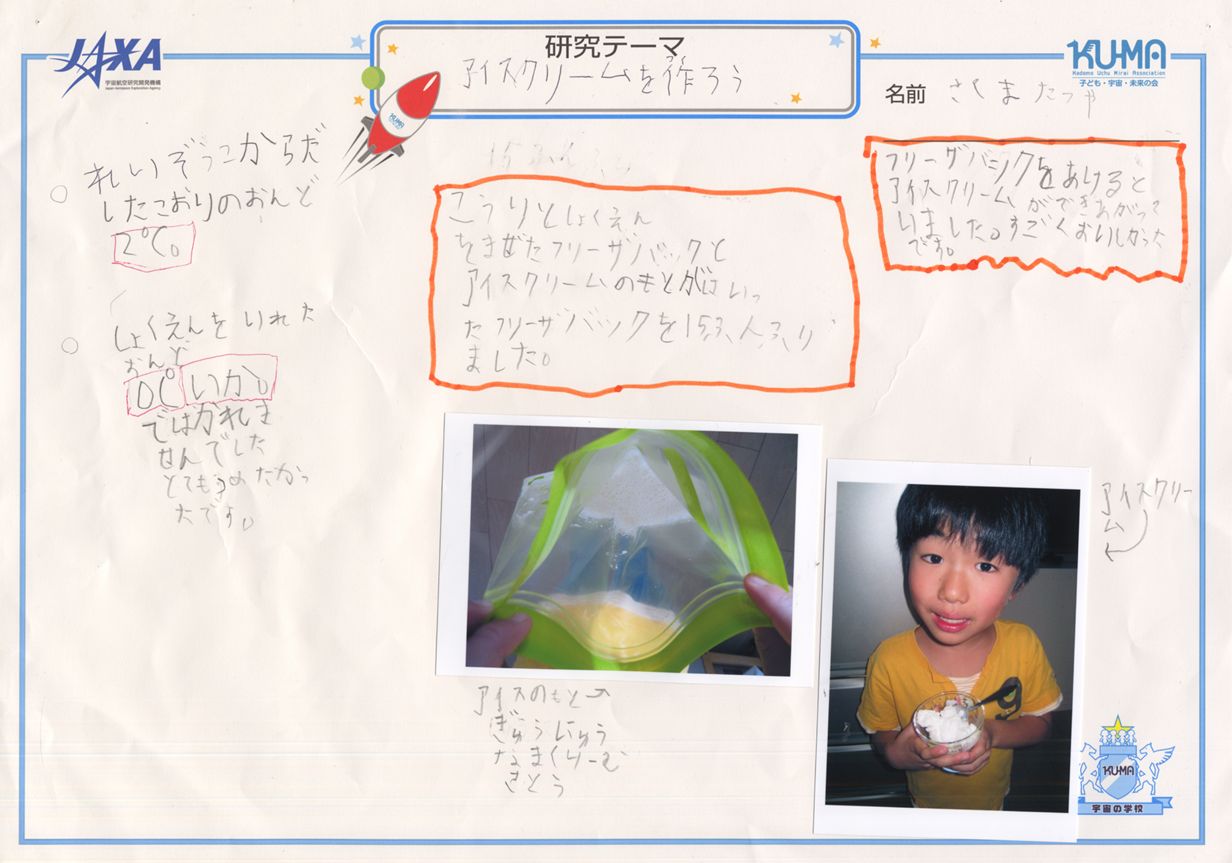 JAXA
宇宙航空研究開発機構
Japan Aerospace Exploration Agency
研究テーマ
アイスクリームを作ろう
KU-MA
Kodomo Uchu Mirai Association
子ども・宇宙・未来の会
名前 さくま たつや
れいぞうこからだ
したこおりのおんど
2℃。
しょくえんをいれた
おんど
0℃いか。
ではかれま
せんでした
とてもつめたかっ
たです。
15ふん
こうりとしょくえん
をまぜたフリーザバックと
アイスクリームのもとがはいっ
たフリーザバックを15ふんふり
ました。
フリーザバックをあけると
アイスクリームができあがって
いました。すごくおいしかった
です。
アイスのもと→
ぎゅうにゅう
なまくりーむ
さとう
アイスクリー
ム
KU-MA
宇宙の学校